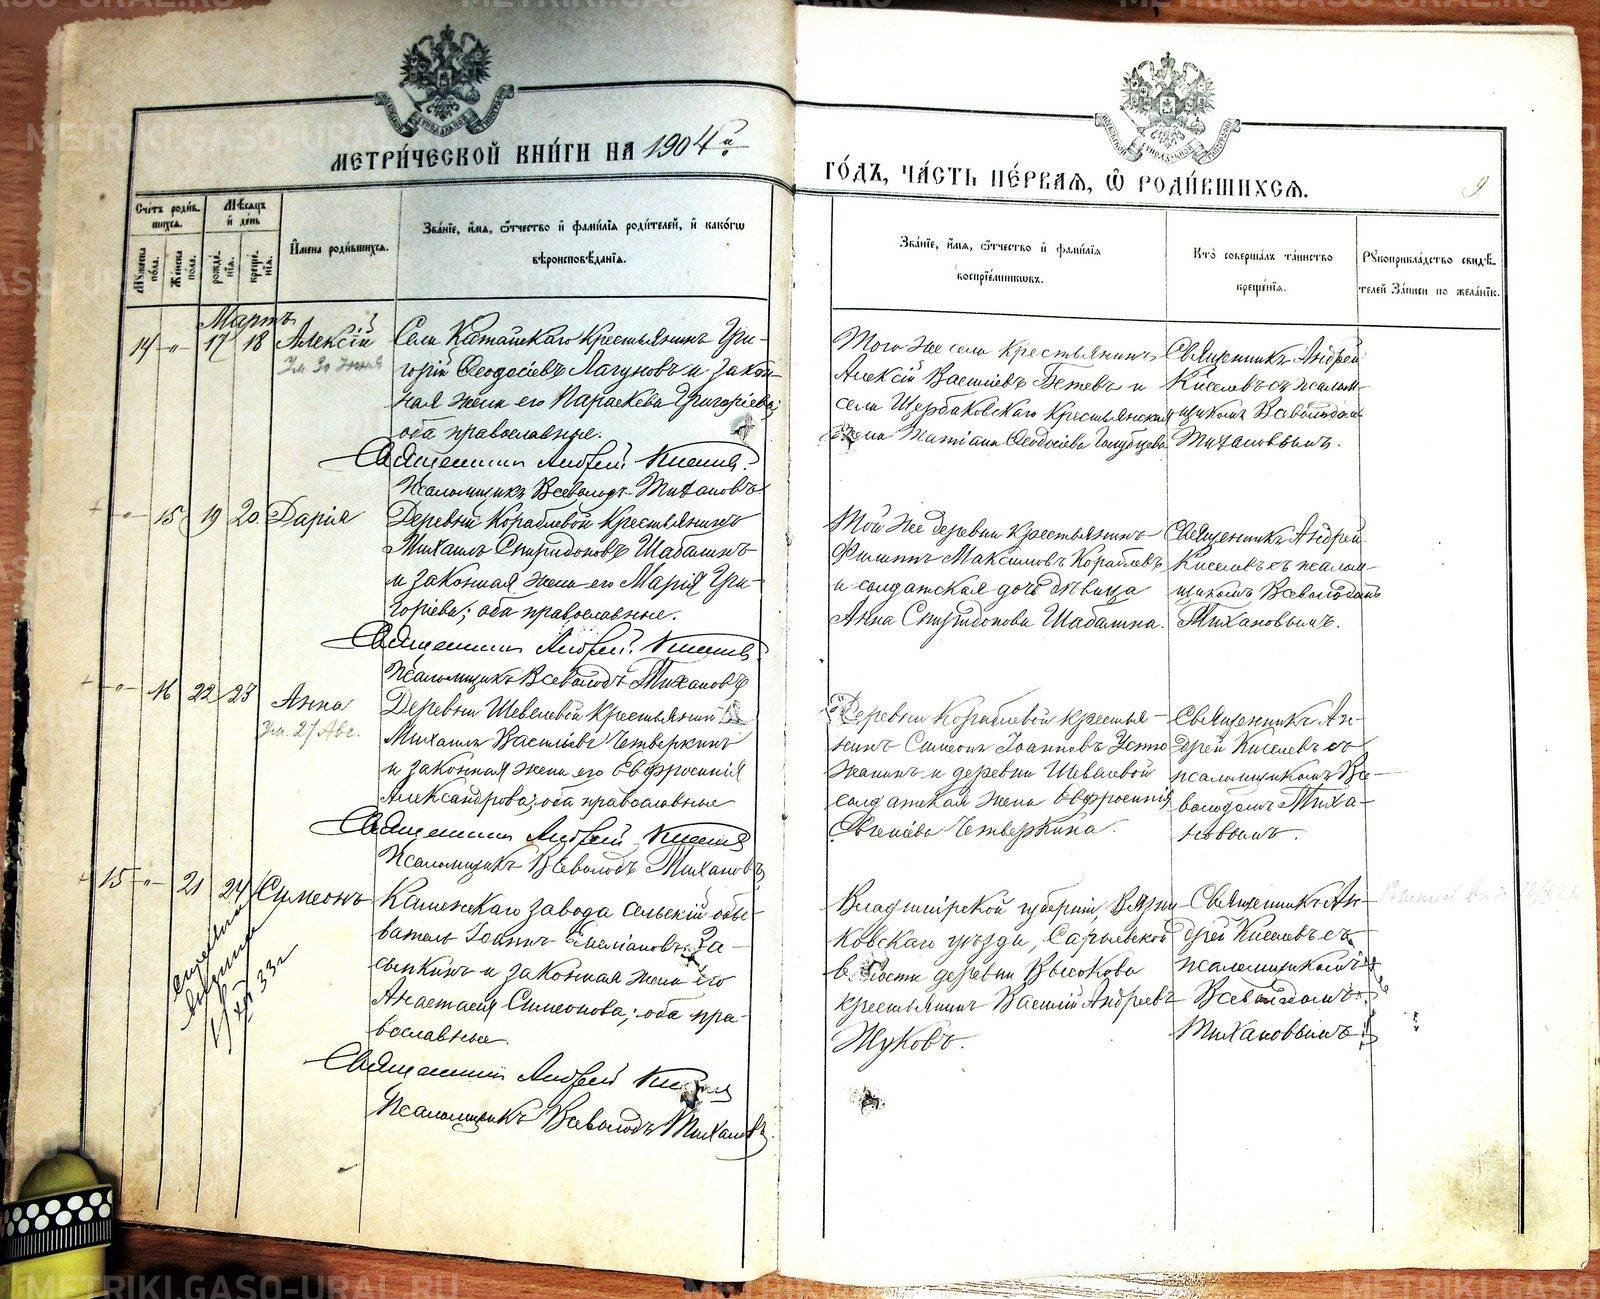 METRIKI.GASO-URAL.RU
МЕТРИ́ЧЕСКОЙ КНИ́ГИ НА 1904й
ГО́ДЪ, ЧА́СТЬ ПЕ́РВАЯ, Ѽ РОДИ́ВШИХСЯ.
9
Сче́тъ роди́вшихся.
Му́жеска по́ла.
Же́нска по́ла.
Мѣ́сяцъ и де́нь
рожде́нїя.
креще́нїя.
И҆мена̀ роди́вшихся.
Зва́нїе, и҆́мя, ѻ҆́тчество и҆ фами́лїя роди́телей, и҆ како́гѡ
вѣроисповѣ́данїя.
Зва́нїе, и҆́мя, ѻ҆́тчество и҆ фами́лїя
воспрїе́мниковъ.
Кто̀ соверша́лъ та́инство
креще́нїя.
Рꙋкоприкла́дство свидѣ́-
телей за́писи по жела́нїю.
Мартъ
14 " 17 18 Алексій
Ум 30 Июня
Села Катайскаго крестьянинъ Гри-
горій Ѳеодосіевъ Лагуновъ и закон-
ная жена его Параскева Григоріева;
оба православные.
Священникъ Андрей Киселевъ.
Псаломщикъ Всеволодъ Тихановъ
Того же села крестьянинъ
Алексій Василіевъ Бетевъ и
села Щербаковскаго крестьянская
жена Татіана Ѳеодосіева
Священникъ Андрей
Киселевъ съ псалом-
щикомъ Всеволодомъ
Тихановымъ.
" 15 19 20 Дарія
Деревни Кораблевой крестьянинъ
Михаилъ Спиридоновъ Шабалинъ
и законная жена его Марія Гри-
горіева; оба православные.
Священникъ Андрей Киселевъ
Псаломщикъ Всеволодъ Тихановъ
Той же деревни крестьянинъ
Филиппъ Максимовъ Кораблевъ
и солдатская дочь дѣвица
Анна Спиридонова Шабалина.
Священникъ Андрей
Киселевъ съ псалом-
щикомъ Всеволодомъ
Тихановымъ.
" 16 22 23 Анна
Ум. 21 Авг.
Деревни Шевелевой крестьянинъ
Михаилъ Василіевъ Четверкинъ
и законная жена его Евфросинія
Александрова; оба православные
Священникъ Андрей Киселевъ
Псаломщикъ Всеволодъ Тихановъ
Деревни Кораблевой крестья-
нинъ Симеонъ Іоанновъ Устю
жанинъ и деревни Шевелевой
солдатская жена Евфросинія
Евгеніева Четверкина.
Священникъ Ан-
дрей Киселевъ съ
псаломщикомъ Все-
володомъ Тиха-
новымъ.
15 " 21 24 Симеонъ
33г
Каменскаго завода сельскій обы-
ватель Іоаннъ Емеліановъ За-
сыпкинъ и законная жена его
Анастасія Симеонова; оба пра-
вославные.
Священникъ Андрей
Псаломщикъ Всеволодъ Тихановъ
Владимірской губерніи, Вязни-
ковскаго уѣзда, Сарыевской
волости деревни Высокова
крестьянинъ Василій Андреевъ
Жуковъ.
Священникъ Ан-
дрей Киселевъ съ
псаломщикомъ
Всеволодомъ
Тихановымъ
METRIKI.GASO-URAL.RU